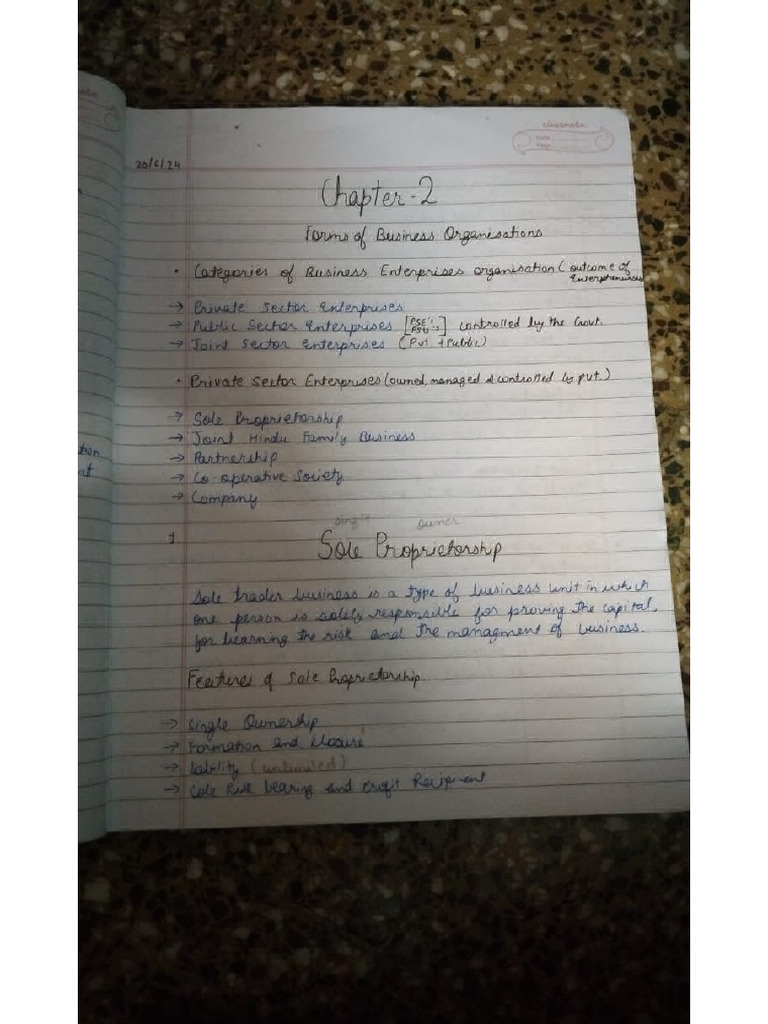 classmate
Date
Page
20/6/24
Chapter-2
Forms of Business Organisations
• Categories of Business Enterprises organisation (outcome of
→ Private Sector Enterprises
→ Public Sector Enterprises [PSE's PSU's] controlled by the Govt.
→ Joint Sector Enterprises (Pvt + Public)
• Private Sector Enterprises (owned, managed & controlled by pvt.)
→ Sole Proprietorship
→ Joint Hindu Family Business
→ Partnership
→ Co-operative Society
→ Company
single owner
1. Sole Proprietorship
Sole trader business is a type of business unit in which
one person is solely responsible for proving the capital,
for bearning the risk and the managment of business.
Features of Sole Proprietorship.
→ Single Ownership
→ Formation and closure
→ Liability (unlimited)
→ Sole Risk bearing and Profit Recipient